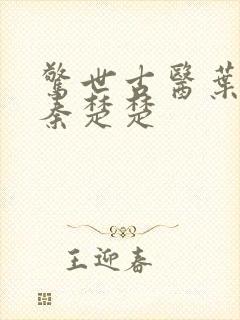 驚世古醫葉
秦楚楚
王迎春